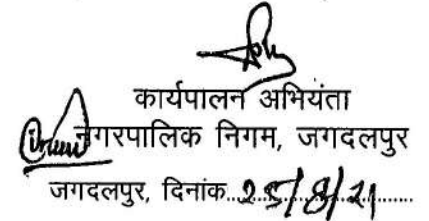 कार्यपालन अभियंता
नगरपालिक निगम, जगदलपुर
जगदलपुर, दिनांक..25/8/21..........